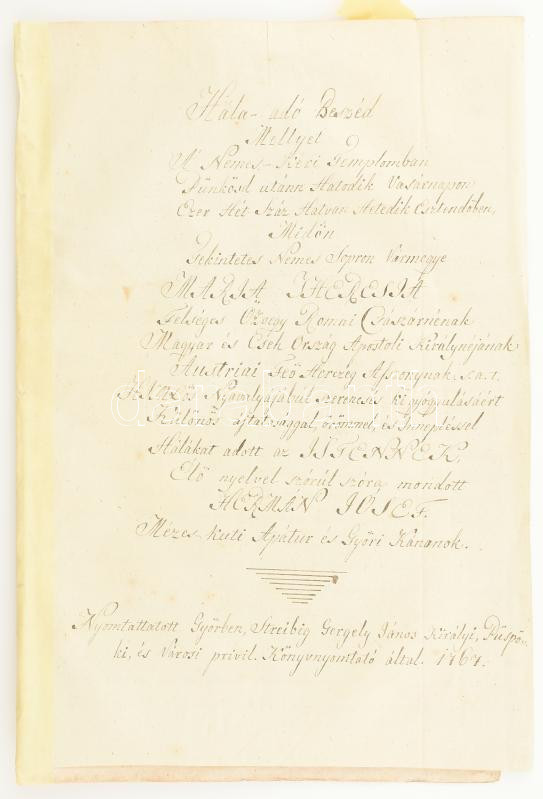 Hála-adó Beszéd
Mellyet
A' Nemes-Kéri Templomban
Pünkösd utánn Hatodik Vasárnapon
Ezer Hét Száz Hatvan Hetedik Esztendőben,
Midőn
Tekintetes Nemes Sopron Vármegye
MARIA THERESIA
Felséges Özvegy Romai Császárnénak
Magyar és Cseh Ország Apostoli Királynéjának
Austriai Fő Herczeg Aszszonynak, s.a.t.
Himlős Nyavalyájábúl szerencsés ki gyógyulásáért
Különös ájtatosággal, örömmel, és Innepléssel
Hálákat adott az ISTENNEK,
Elő nyelvel szórúl szóra mondott
HERMAN JOSEF.
Mézes-kuti Apátur és Győri Kánonok.
Nyomtattatott Győrben, Streibig Gergely János Királyi, Püspö-
ki, és Városi privil. Könyvnyomtató által. 1767.